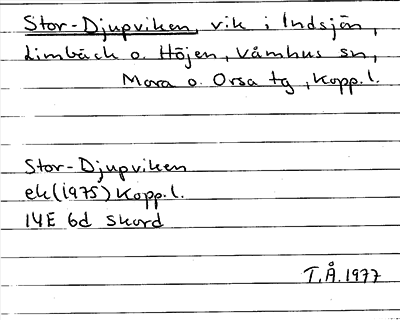 Stor-Djupviken, vik i Indsjön,
Limbäck o. Höjen, Våmhus sn,
Mora o. Orsa tg, Kopp.l.
Stor-Djupviken
ek(1975) Kopp.l.
14E 6d Skord
T.Å.1977